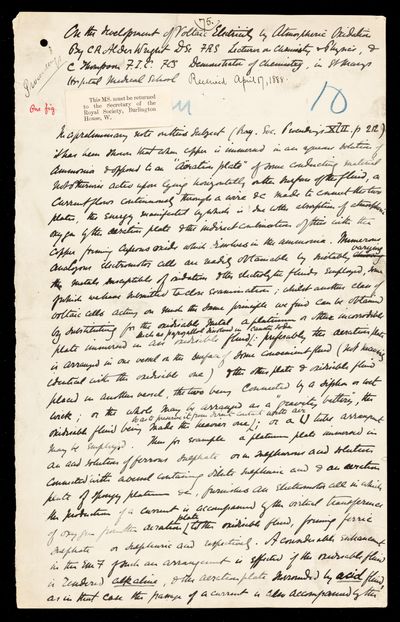 75.
On the development of Voltaic Electricity by Atmospheric Oxidation
By C R Alder Wright DSc FRS Lecturer on Chemistry & Physics, &
C Thompson F.I.C. FCS Demonstrator of Chemistry, in St Mary's
Hospital Medical School Received April 17, 1888.
One fig
This MS. must be returned
to the Secretary of the
Royal Society, Burlington
House, W.
In a preliminary note on this subject (Roy. Soc. Proceedings XLII p 212)
it has been shown that when copper is immersed in an aqueous solution of
Ammonia & opposed to an "Aeration plate" of some conducting material
not otherwise acted upon lying horizontally on the surface of the fluid, a
Current flows continuously through a wire &c made to connect the two
plates, the Energy manifested by which is due to the absorption of atmospheric
oxygen by the aeration plate & the indirect combination of this with the
Copper forming cuprous oxide which dissolves in the ammonia. Numerous
analogous electromotor cells are readily obtainable by suitably varying
the metals susceptible of oxidation & the electrolytic fluids employed, some
of which we have submitted to close examination; whilst another class of
voltaic cells acting on much the same principle we find can be obtained
by substituting for the oxidisable metal a platinum or other incorrodible
plate immersed in an oxidisable fluid such as pyrogallol dissolved in caustic soda: preferably, the aeration plate
is arranged in one vessel on the surface of some convenient fluid (not necessarily
identical with the oxidisable one) & the other plate & oxidisable fluid
placed in another vessel, the two being Connected by a siphon or wet
wick; or the whole may be arranged as a "gravity battery, the
oxidisable fluid being made the heavier one so as to preserve it from direct contact with air); or a U tube arrangement
may be employed. Thus for example a platinum plate immersed in
an acid solution of ferrous sulphate or in sulphurous acid solution
Connected with a vessel containing dilute sulphuric acid & an aeration
plate of spongy platinum &c, furnishes an Electromotor cell in which
the production of a current is accompanied by the virtual transference
of oxygen from the aeration plate to the oxidisable fluid, forming ferric
sulphate or sulphuric acid respectively. A considerable enhancement
in the EMF of such an arrangement is effected if the oxidisable fluid
is rendered alkaline, & the aeration plate surrounded by acid fluid,
as in that case the passage of a current is also accompanied by the